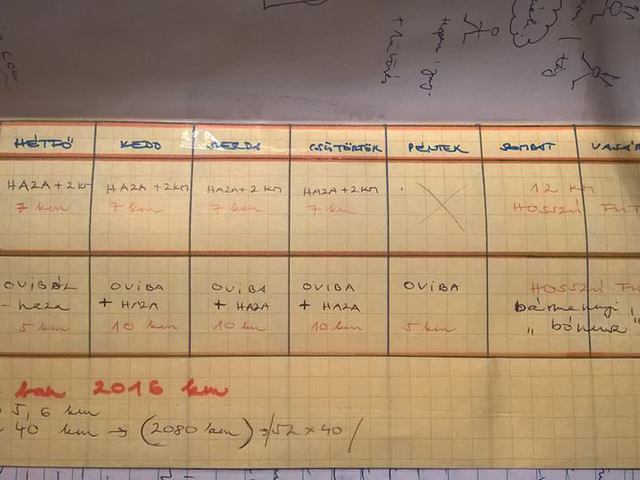 HÉTFŐ KEDD SZERDA CSÜTÖRTÖK PÉNTEK SZOMBAT
HAZA+2 km HAZA +2 km HAZA+2 km HAZA+2 km
7 km 7 km 7 km 7 km 12 km
HOSSZÚ
OVIBÁL OVIBA OVIBA OVIBA OVIBA HOSSZÚ
- haza + HAZA + HAZA + HAZA bármennyi
5 km 10 km 10 km 10 km 5 km „ bónusz "
ban 2016 km
5,6 km
40 km → (2080 km) → /52 x 40 /